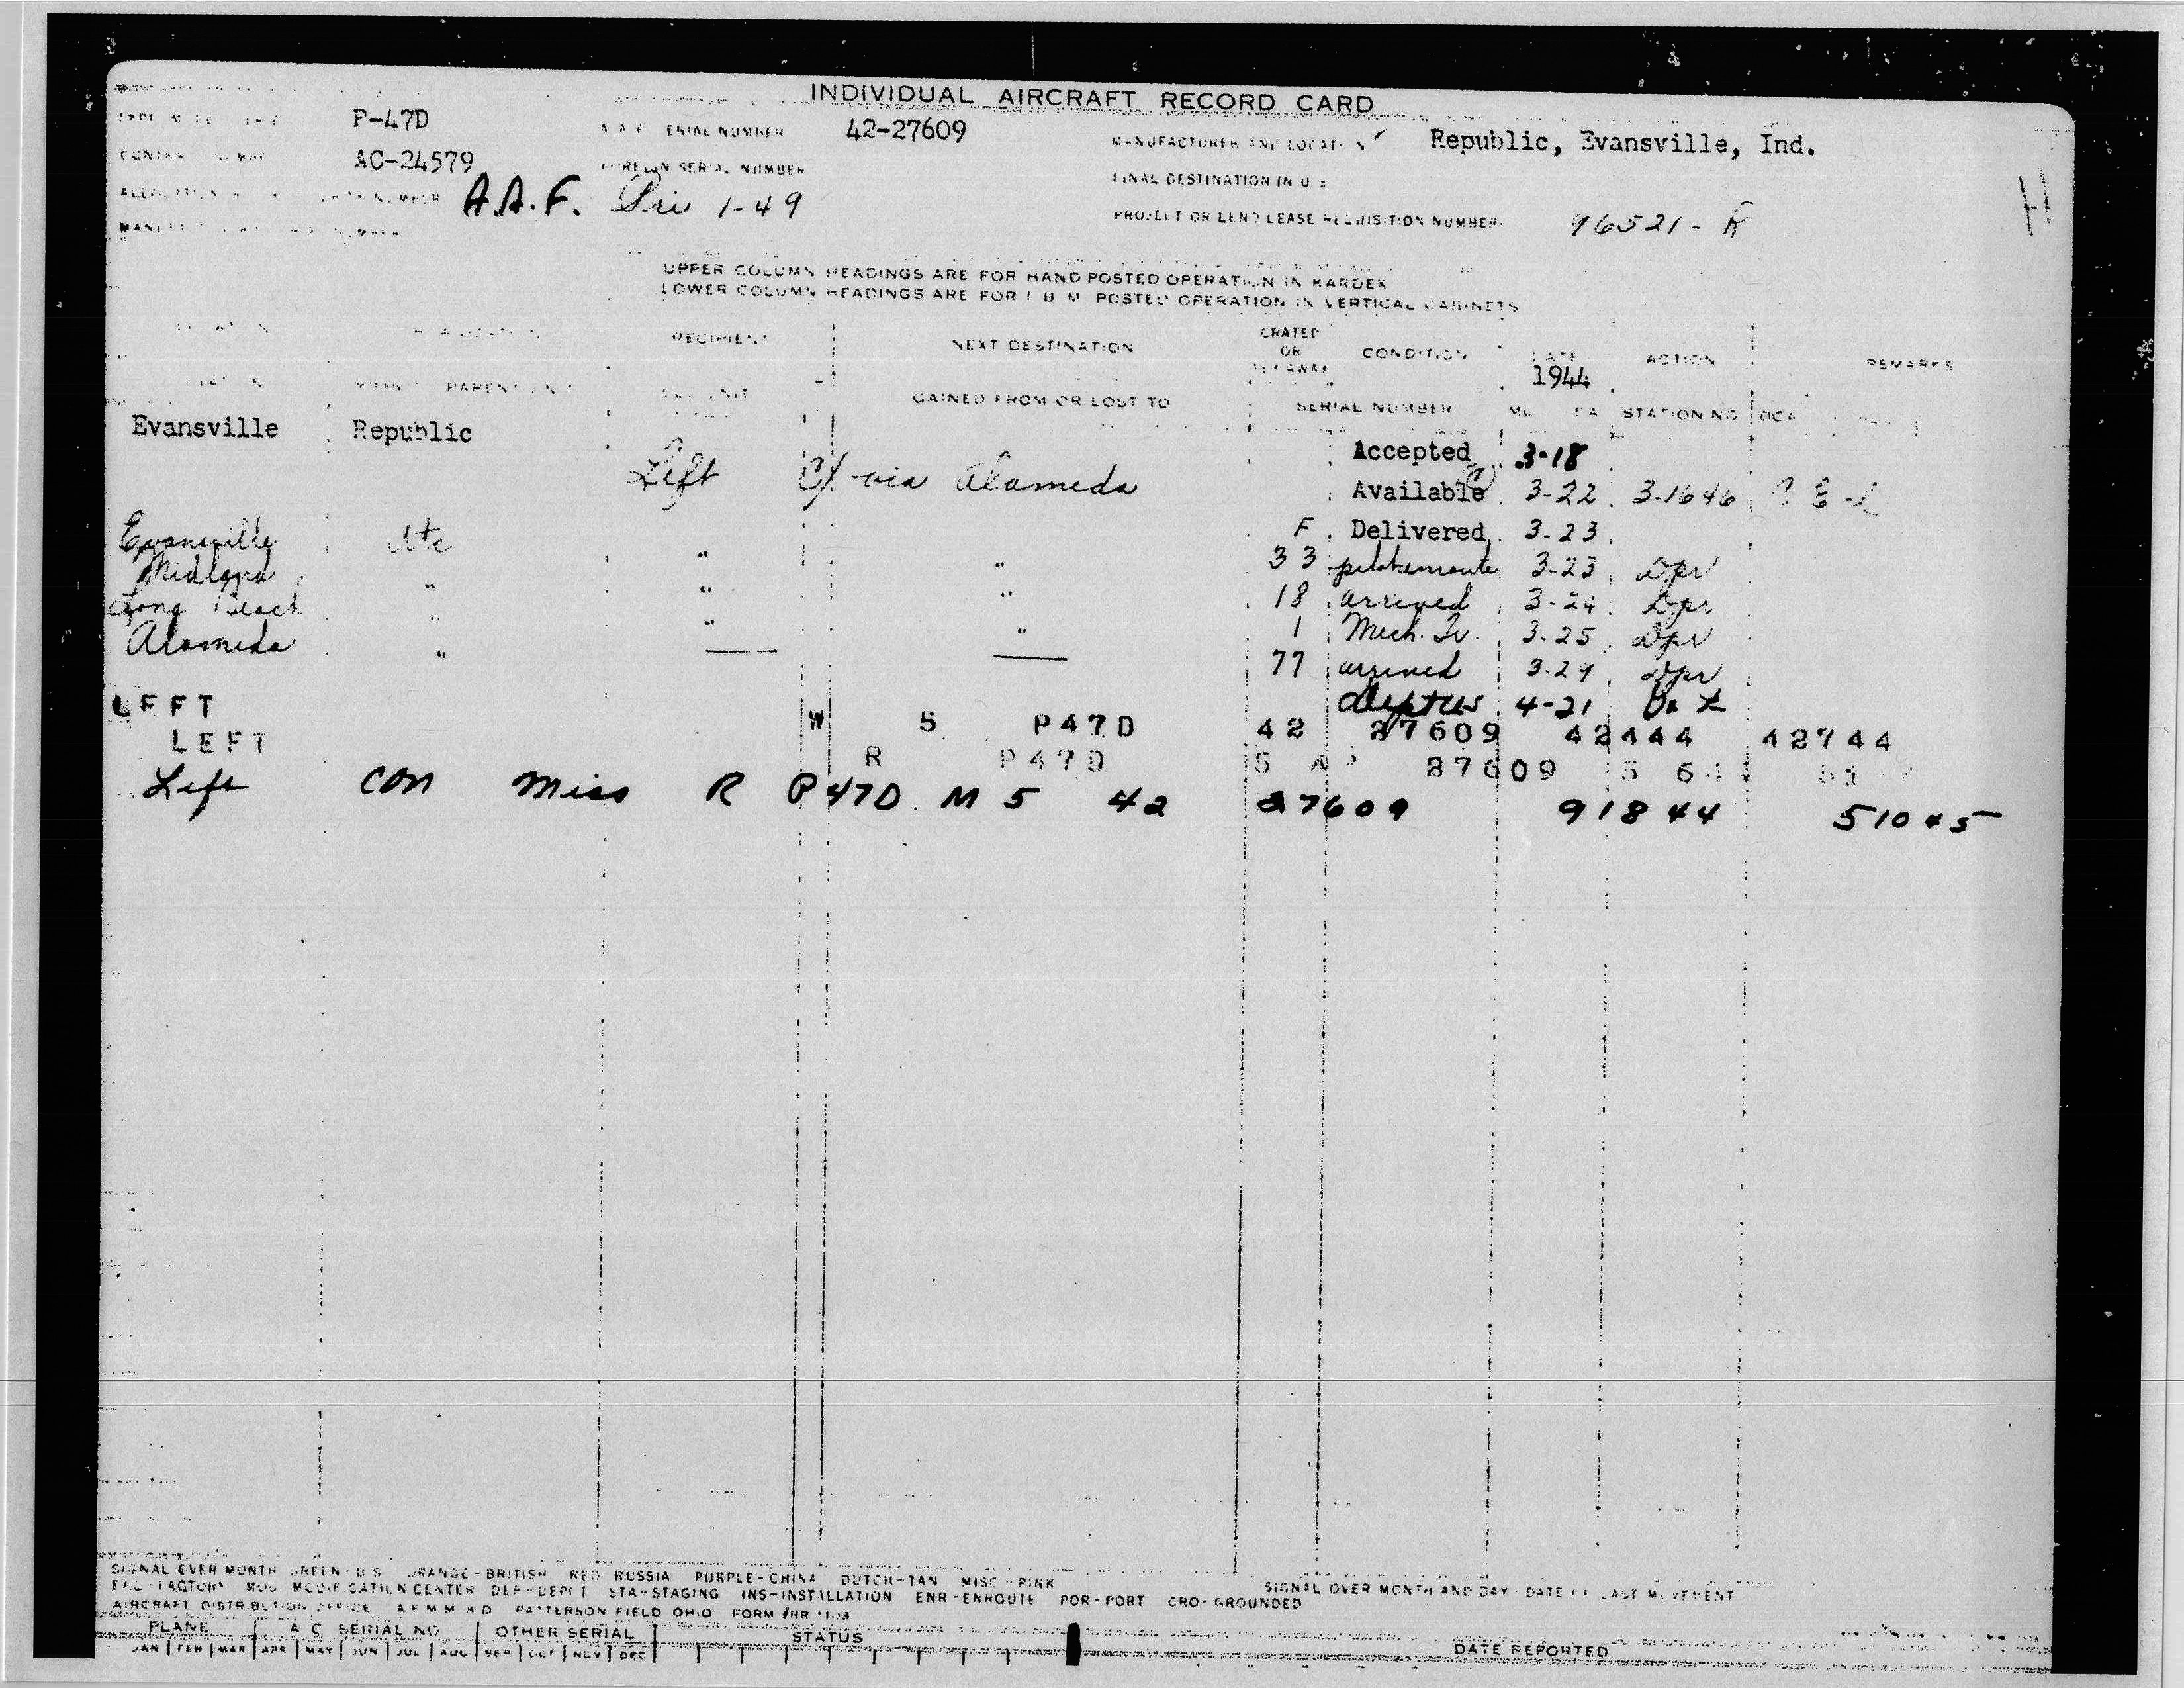 INDIVIDUAL AIRCRAFT RECORD CARD
P-47D
SERIAL NUMBER 42-27609
MANUFACTURER AND LOCATION Republic, Evansville, Ind.
AC-24579
FOREIGN SERIAL NUMBER
FINAL DESTINATION IN U S
A.A.F. 1-49
PROJECT OR LEND LEASE REQUISITION NUMBER 96521-R
H
UPPER COLUMN HEADINGS ARE FOR HAND POSTED OPERATION IN KARDEX
LOWER COLUMN HEADINGS ARE FOR I B M POSTED OPERATION IN VERTICAL CABINETS
RECIPIENT NEXT DESTINATION CRATED OR FLYAWAY CONDITION DATE ACTION REMARKS
1944
PARENT GAINED FROM OR LOST TO SERIAL NUMBER MO DA STATION NO
Evansville Republic Accepted 3-18
Left via Alameda Available 3-22 3-1646
Evansville F Delivered 3-23
Midland " " " 33 3-23 Dpr
Long Beach " " " 18 arrived 3-24 Dpr
Alameda " " " 1 Mech. 3-25 Dpr
77 arrived 3-29 Dpr
4-21
LEFT W 5 P47D 42 27609 42444 42744
LEFT R P47D 5 27609 5
Left con miss R P47D M 5 42 27609 91844 51045
SIGNAL OVER MONTH GREEN-U S ORANGE-BRITISH RED RUSSIA PURPLE-CHINA DUTCH-TAN MISC-PINK
FAC-FACTORY MOD MODIFICATION CENTER DEP-DEPOT STA-STAGING INS-INSTALLATION ENR-ENROUTE POR-PORT GRO-GROUNDED
SIGNAL OVER MONTH AND DAY DATE OF LAST MOVEMENT
AIRCRAFT DISTRIBUTION OFFICE PATTERSON FIELD OHIO FORM
PLANE A C SERIAL NO OTHER SERIAL STATUS DATE REPORTED
JAN FEB MAR APR MAY JUN JUL AUG SEP OCT NOV DEC